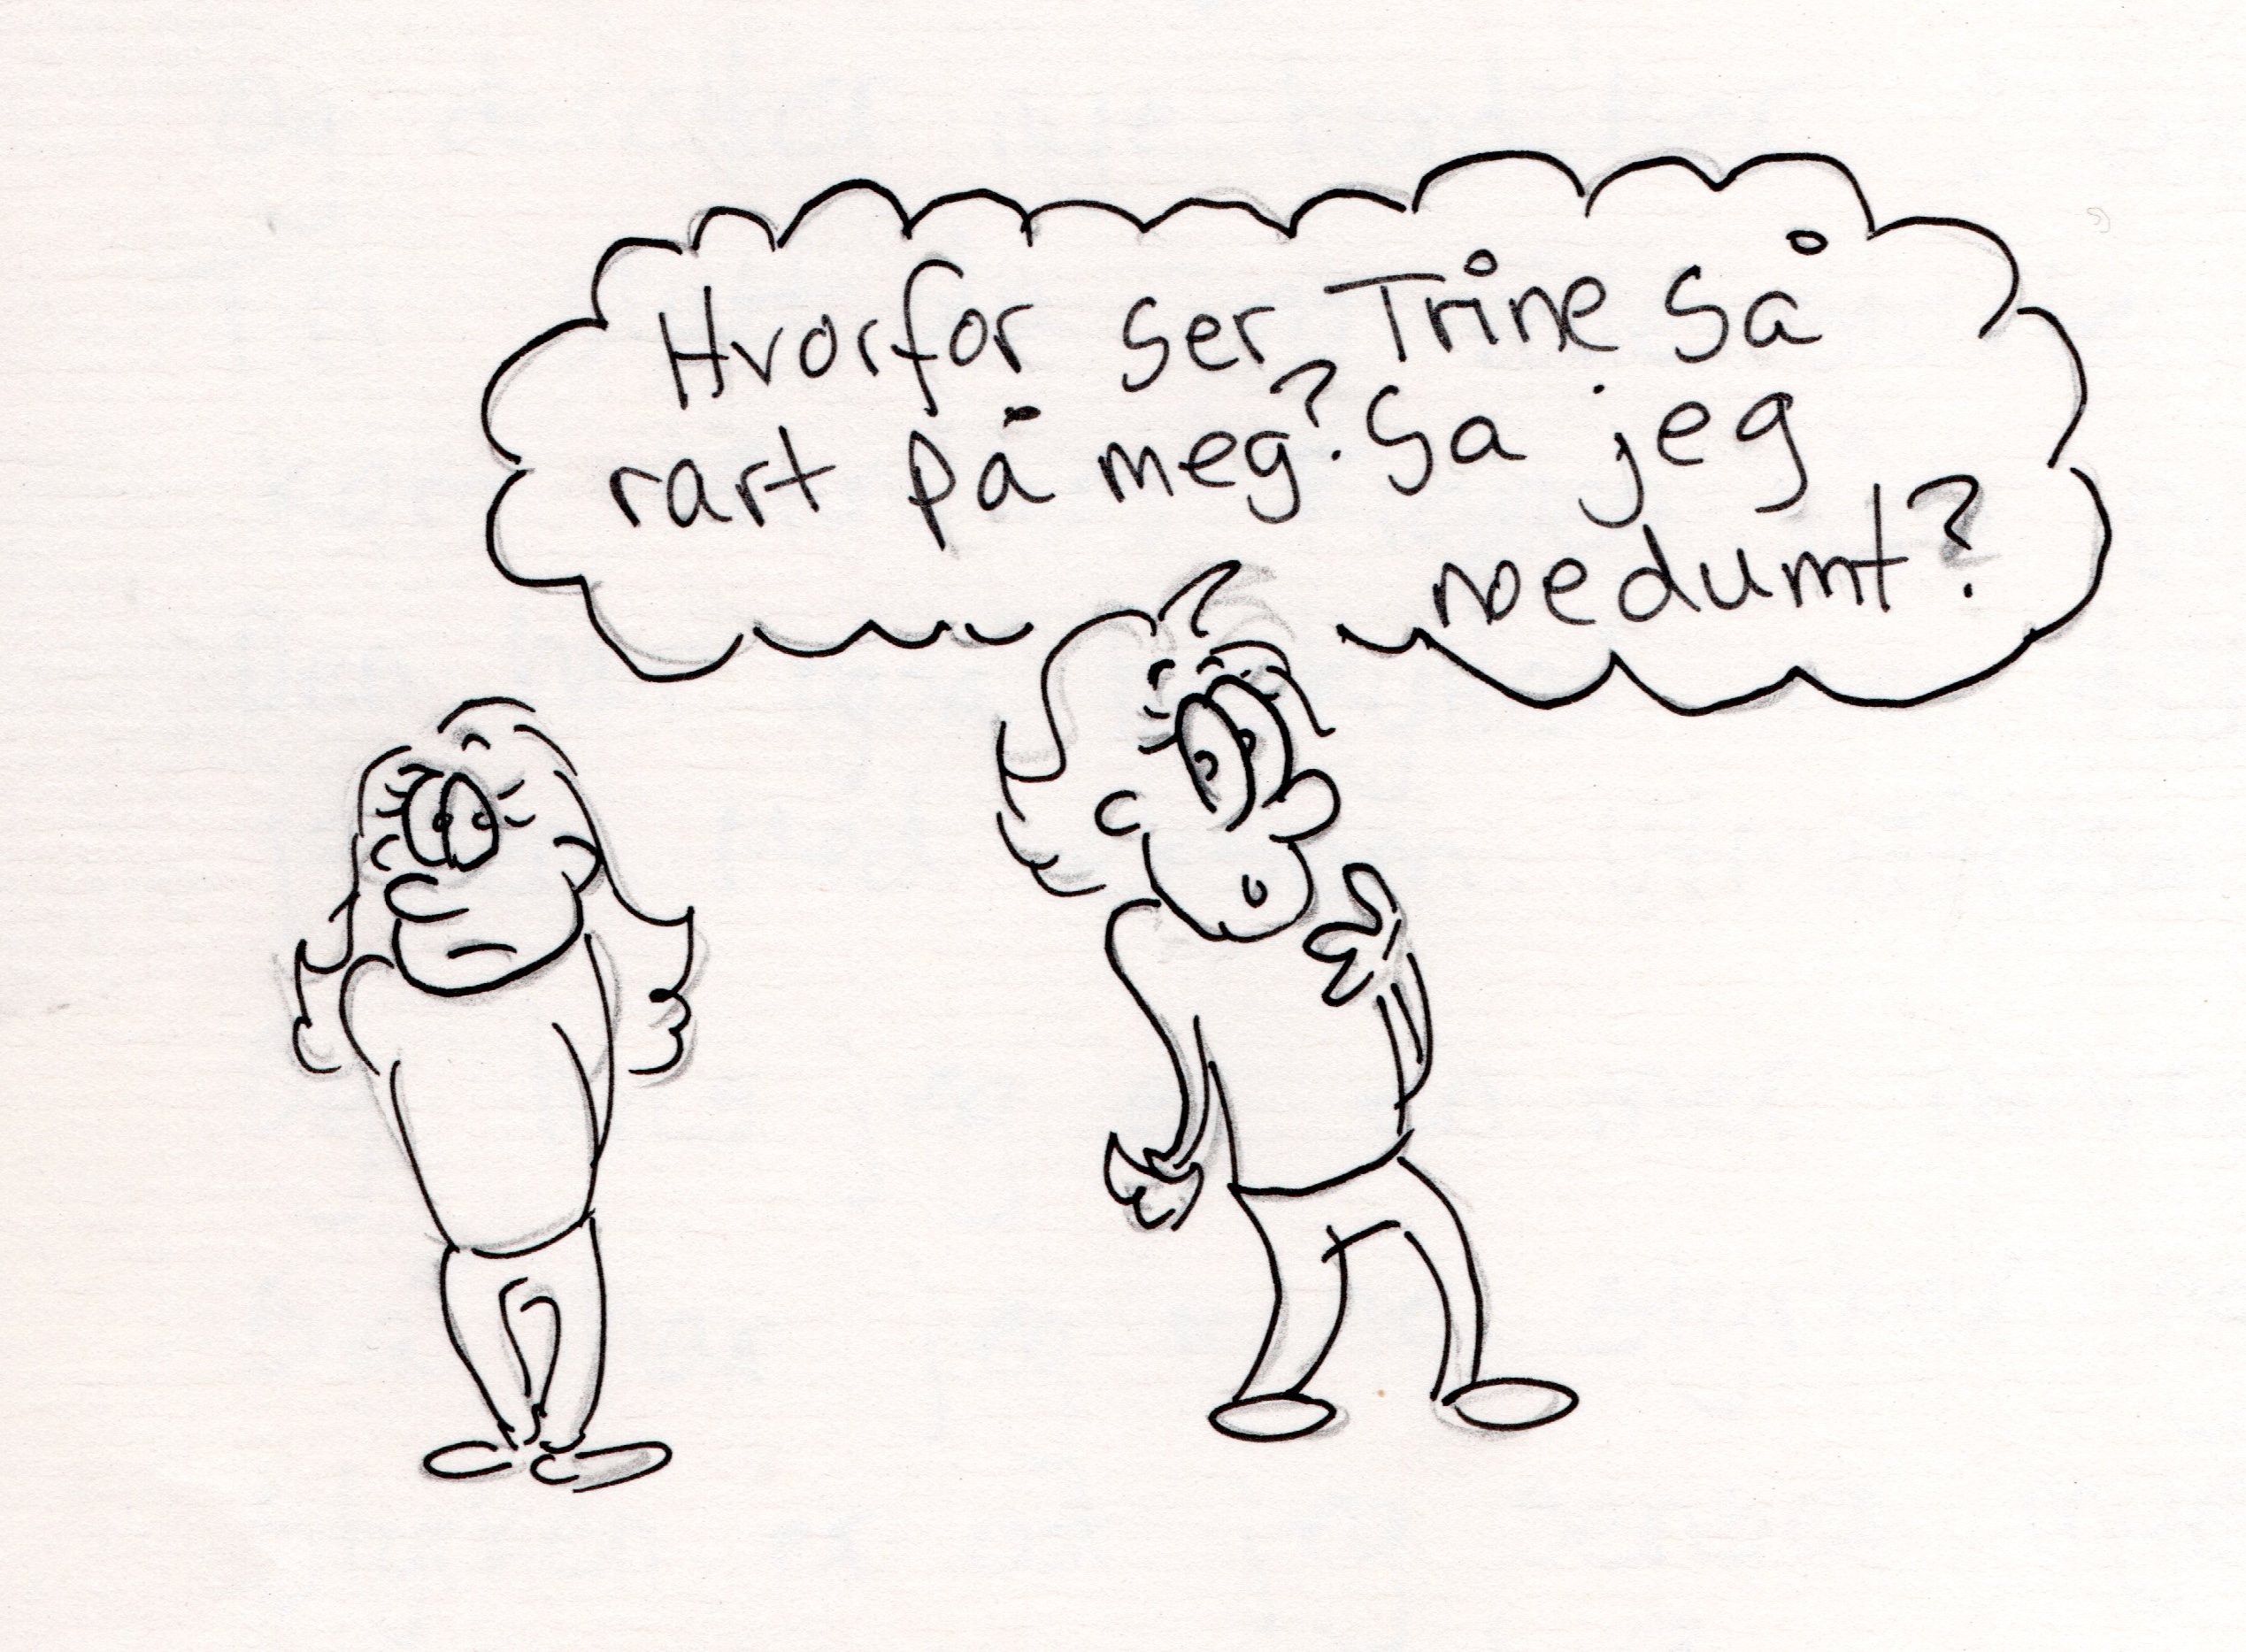 Hvorfor ser Trine så
rart på meg? Sa jeg
noe dumt?